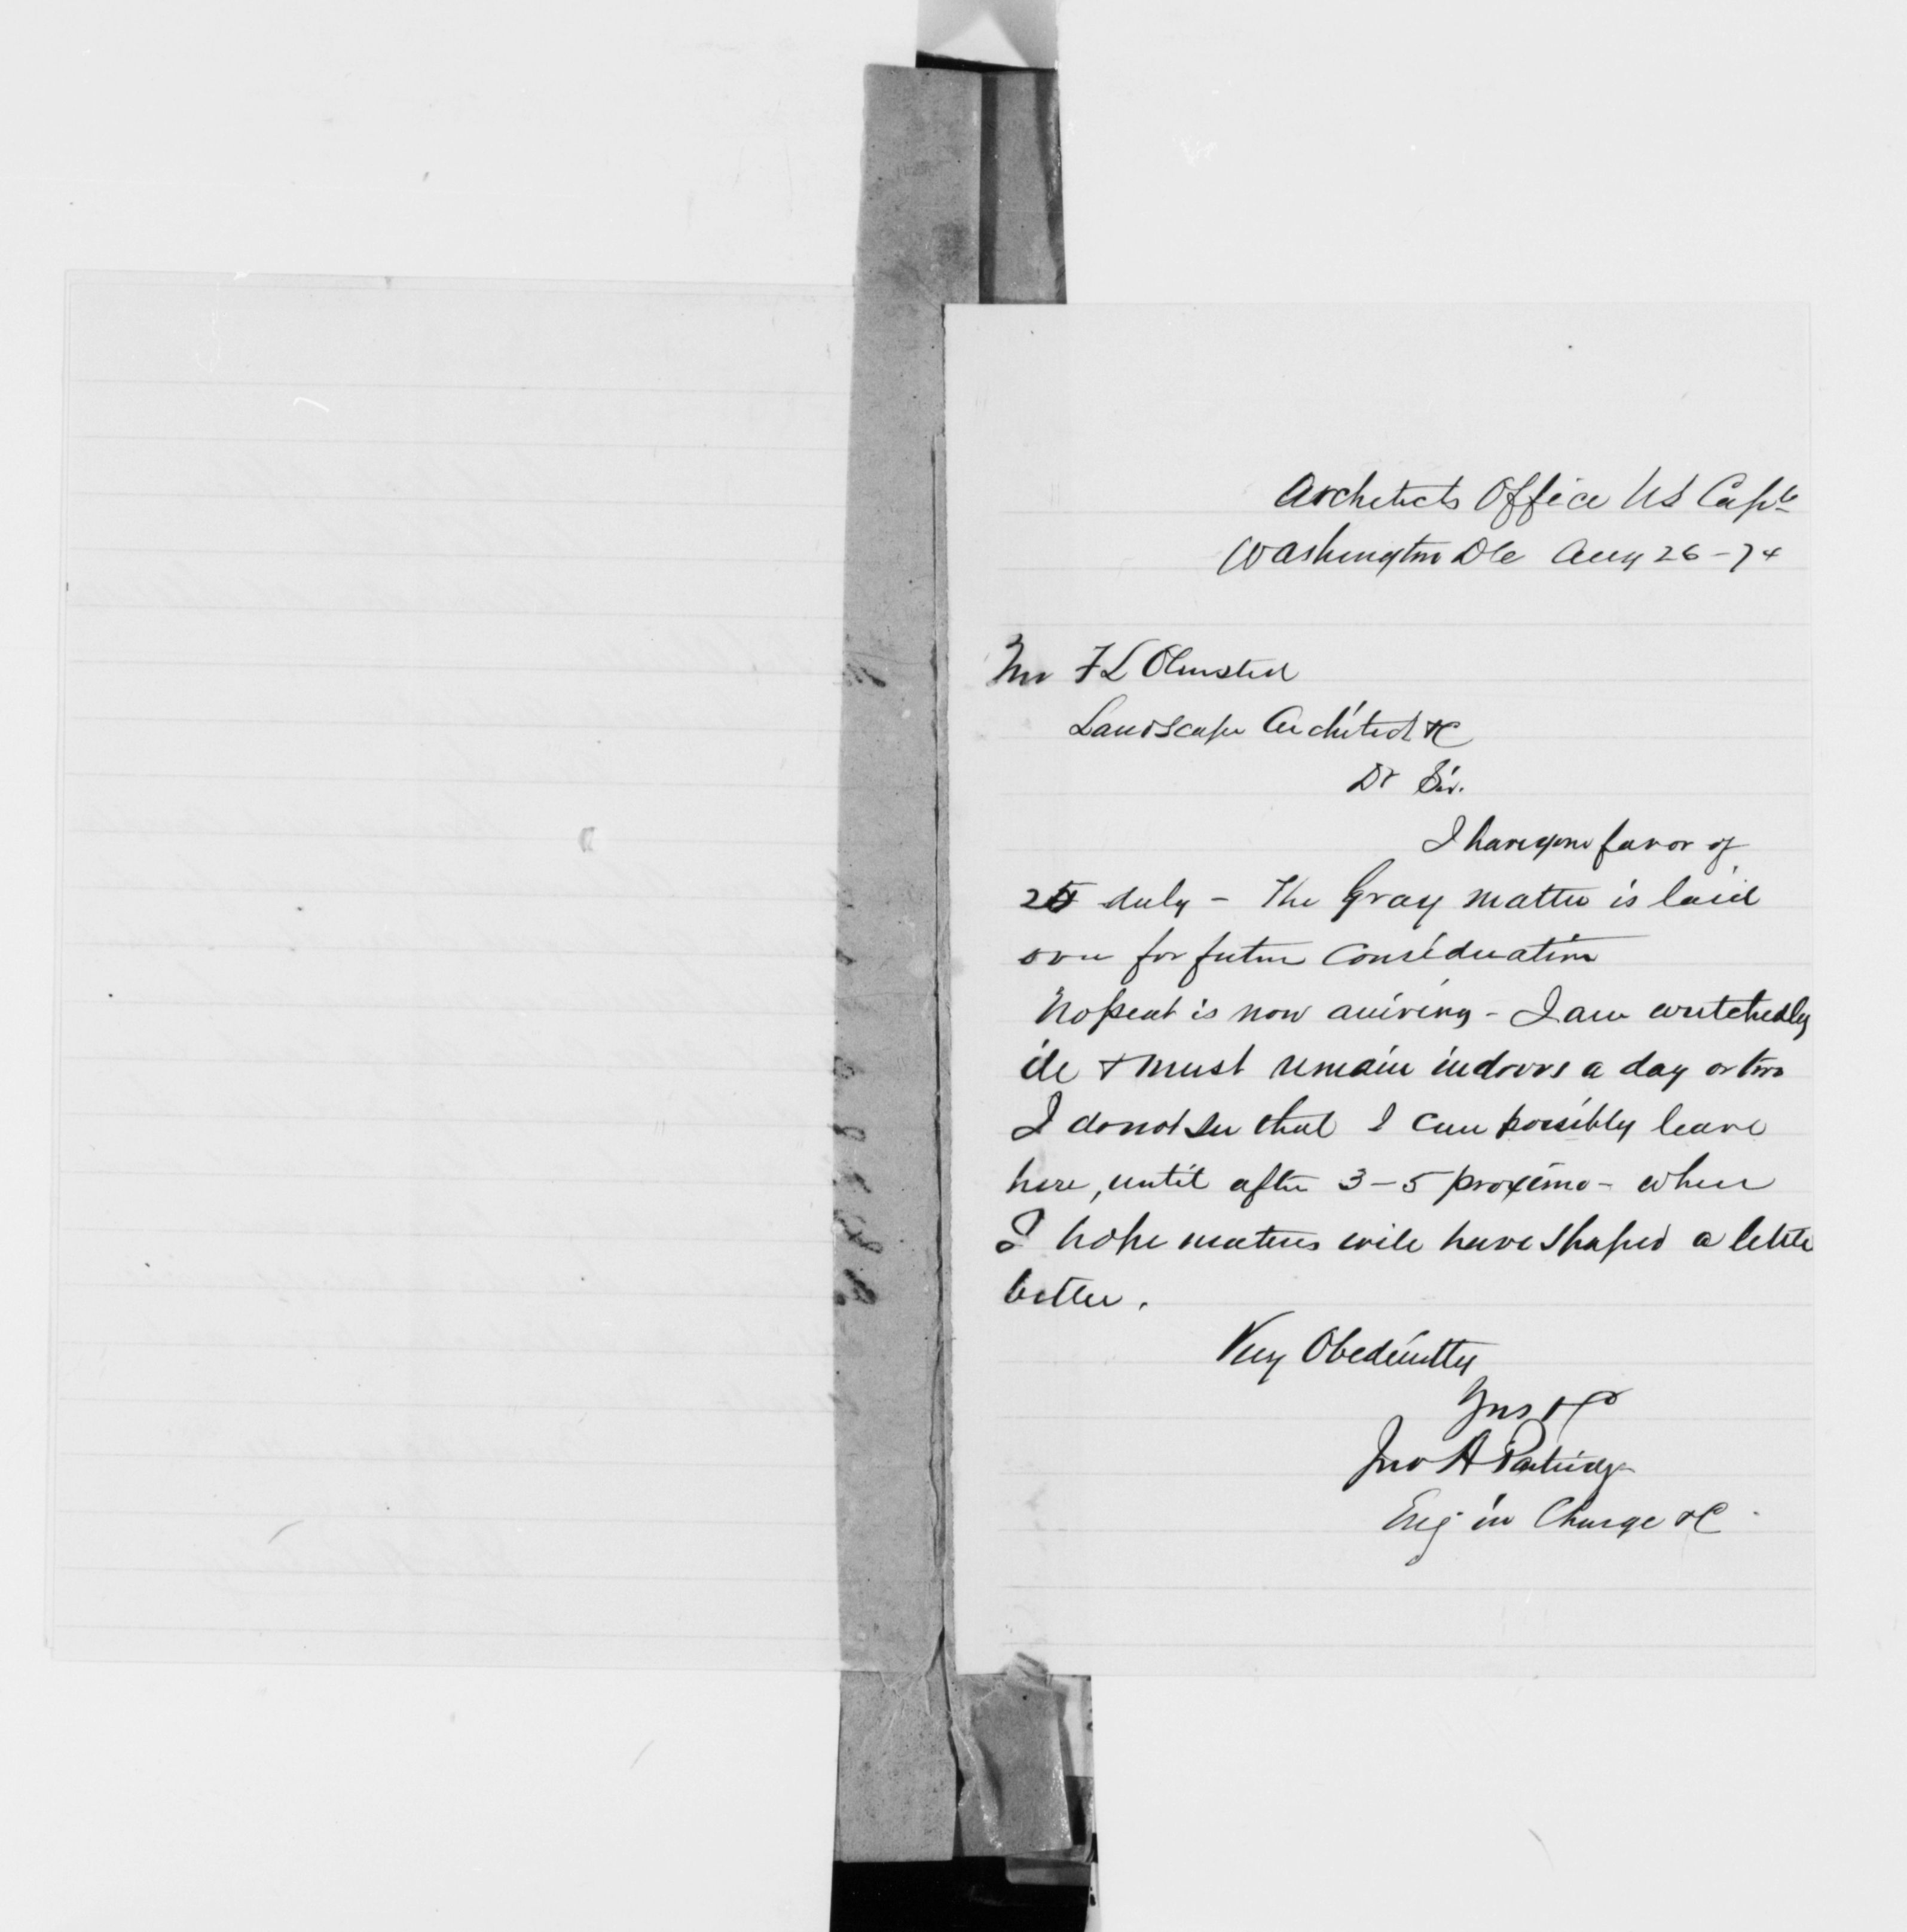 Architects Office US Capl
Washington DC Aug 26-74
Mr F L Olmsted
Landscape Architect &C
Dr Sir.
I have your favor of
25 duly - The Gray matter is laid
over for future consideration
No peat is now arriving - I am wretchedly
ill & must remain indoors a day or two
I do not see that I can possibly leave
here, until after 3-5 proximo - when
I hope matters will have shaped a little
better.
Very Obediently
Yrs &C
Jno A Partridge
Eng in Charge &C